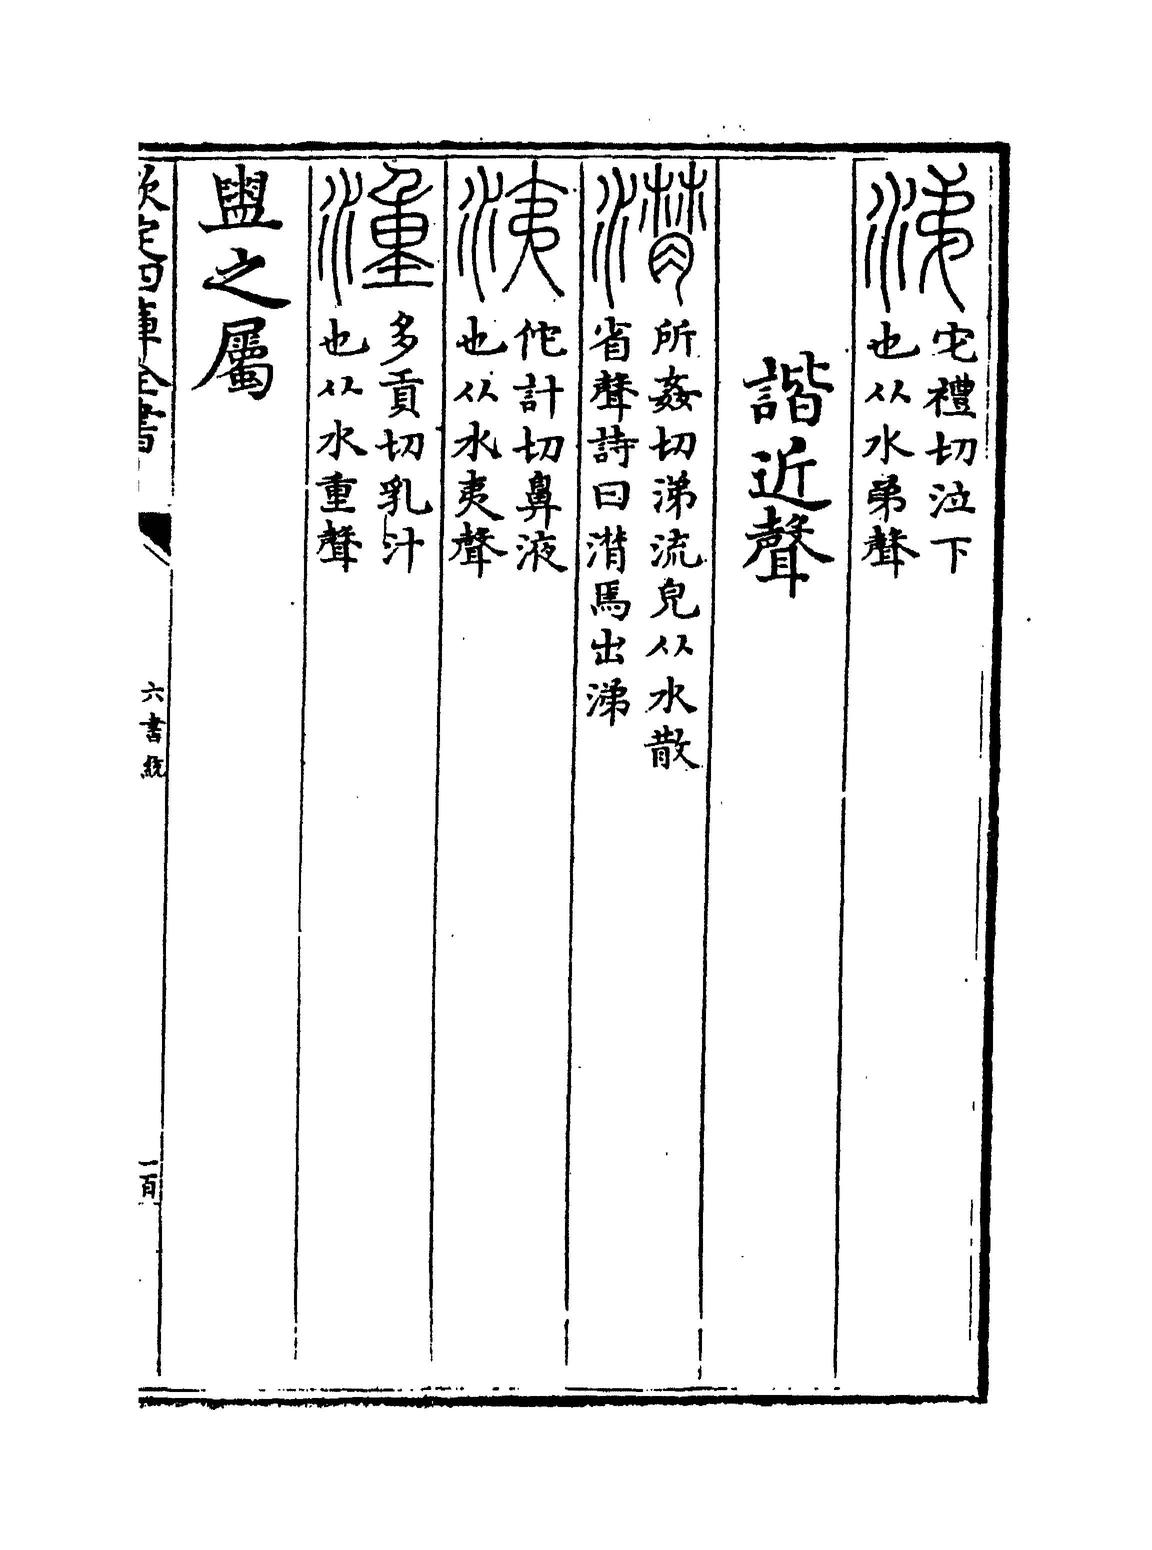 涕
它禮切泣下
也从水弟聲
諧近聲
潸
所姦切涕流皃从水散
省聲詩曰潸焉出涕
洟
佗計切鼻液
也从水夷聲
湩
多貢切乳汁
也从水重聲
盥之屬
欽定四庫全書
六書統
一百